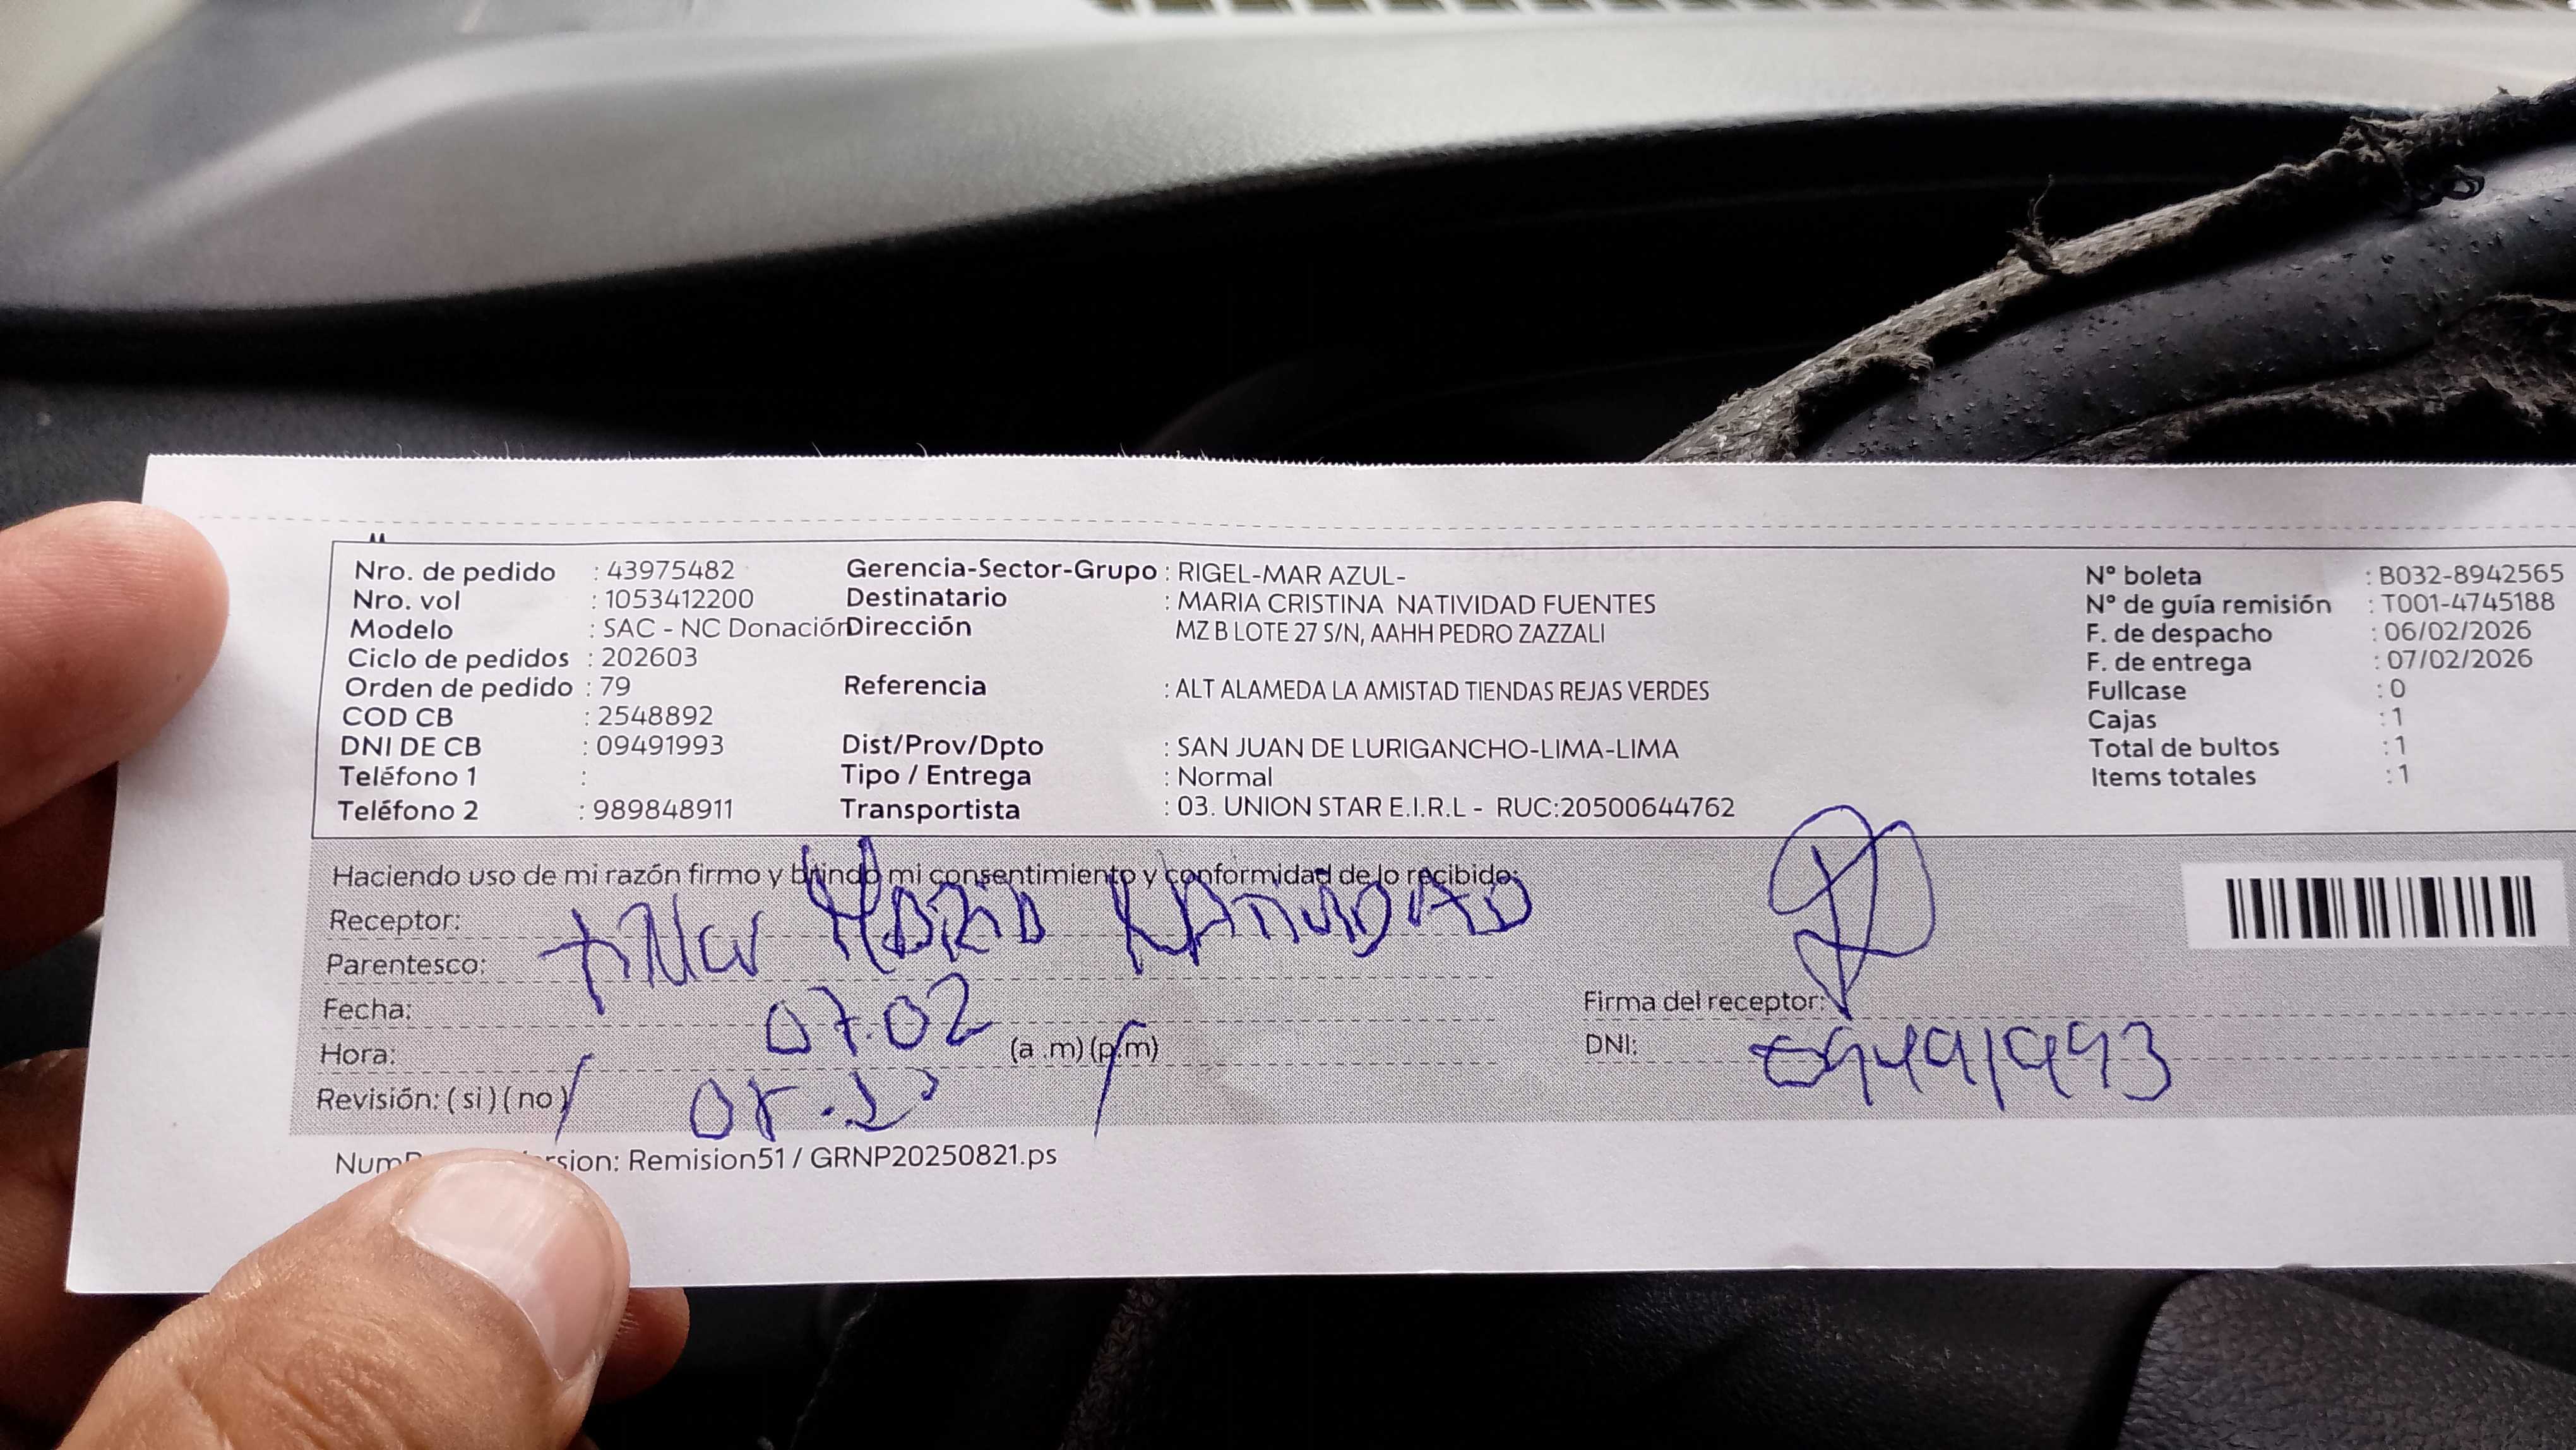 Nro. de pedido : 43975482
Nro. vol : 1053412200
Modelo : SAC - NC Donación
Ciclo de pedidos : 202603
Orden de pedido : 79
COD CB : 2548892
DNI DE CB : 09491993
Teléfono 1 :
Teléfono 2 : 989848911
Gerencia-Sector-Grupo : RIGEL-MAR AZUL-
Destinatario : MARIA CRISTINA NATIVIDAD FUENTES
Dirección MZ B LOTE 27 S/N, AAHH PEDRO ZAZZALI
Referencia : ALT ALAMEDA LA AMISTAD TIENDAS REJAS VERDES
Dist/Prov/Dpto : SAN JUAN DE LURIGANCHO-LIMA-LIMA
Tipo / Entrega : Normal
Transportista : 03. UNION STAR E.I.R.L - RUC:20500644762
N° boleta : B032-8942565
N° de guía remisión : T001-4745188
F. de despacho : 06/02/2026
F. de entrega : 07/02/2026
Fullcase : 0
Cajas : 1
Total de bultos : 1
Items totales : 1
Haciendo uso de mi razón firmo y brindo mi consentimiento y conformidad de lo recibido:
Receptor: MARIA NATIVIDAD
Parentesco:
Fecha: 07.02
Hora: (a .m) (p.m)
Revisión: ( si ) ( no )
Firma del receptor:
DNI: 09491993
sion: Remision51 / GRNP20250821.ps